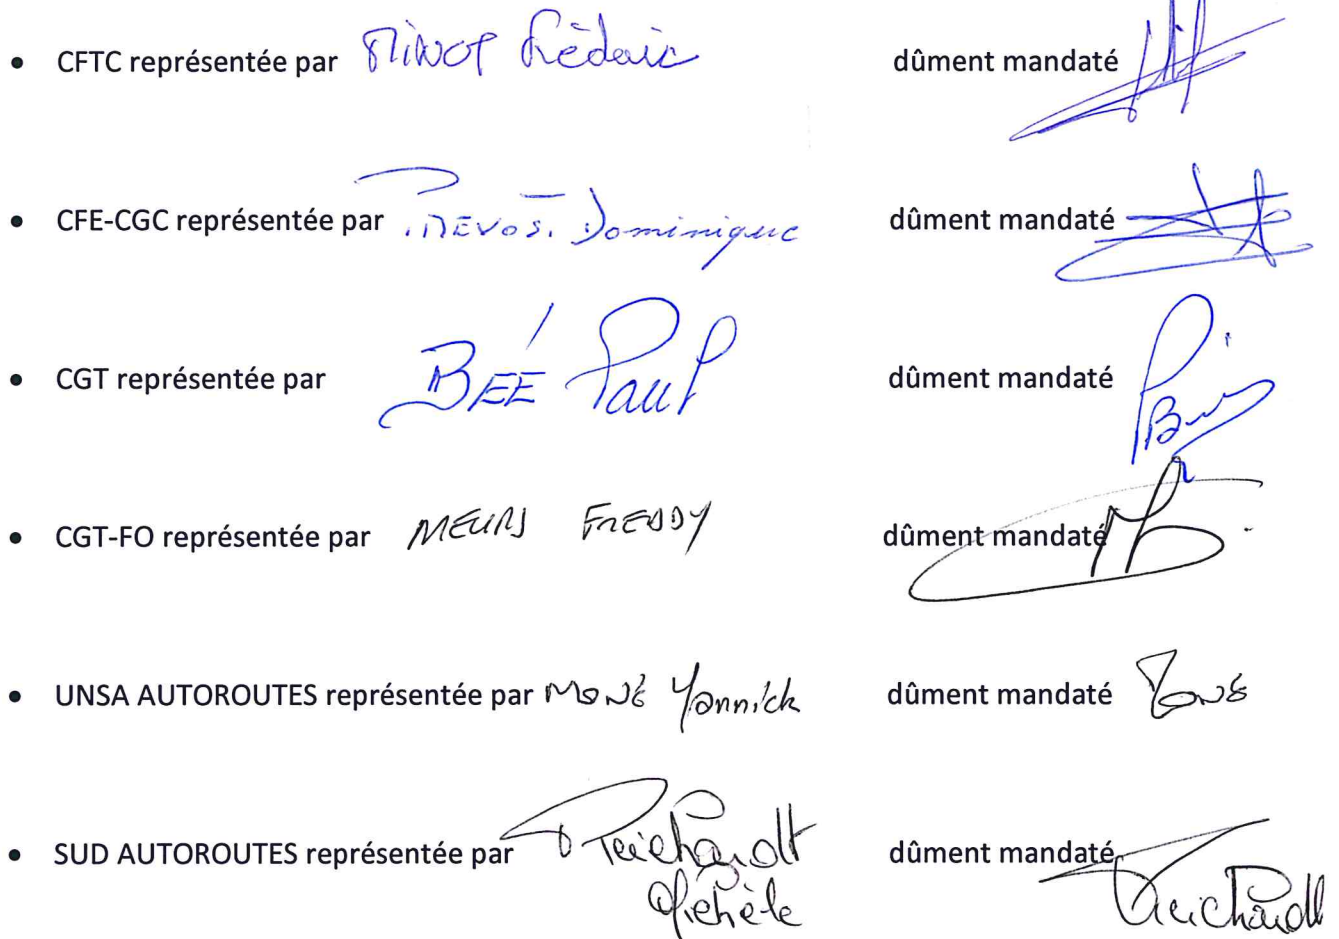 • CFTC représentée par MINOT Frédéric dûment mandaté
• CFE-CGC représentée par PREVOST Dominique dûment mandaté
• CGT représentée par BEÉ Paul dûment mandaté
• CGT-FO représentée par MEURS FREDDY dûment mandaté
• UNSA AUTOROUTES représentée par MONÉ Yannick dûment mandaté MONÉ
• SUD AUTOROUTES représentée par Reichardt dûment mandaté Reichardt
Michèle